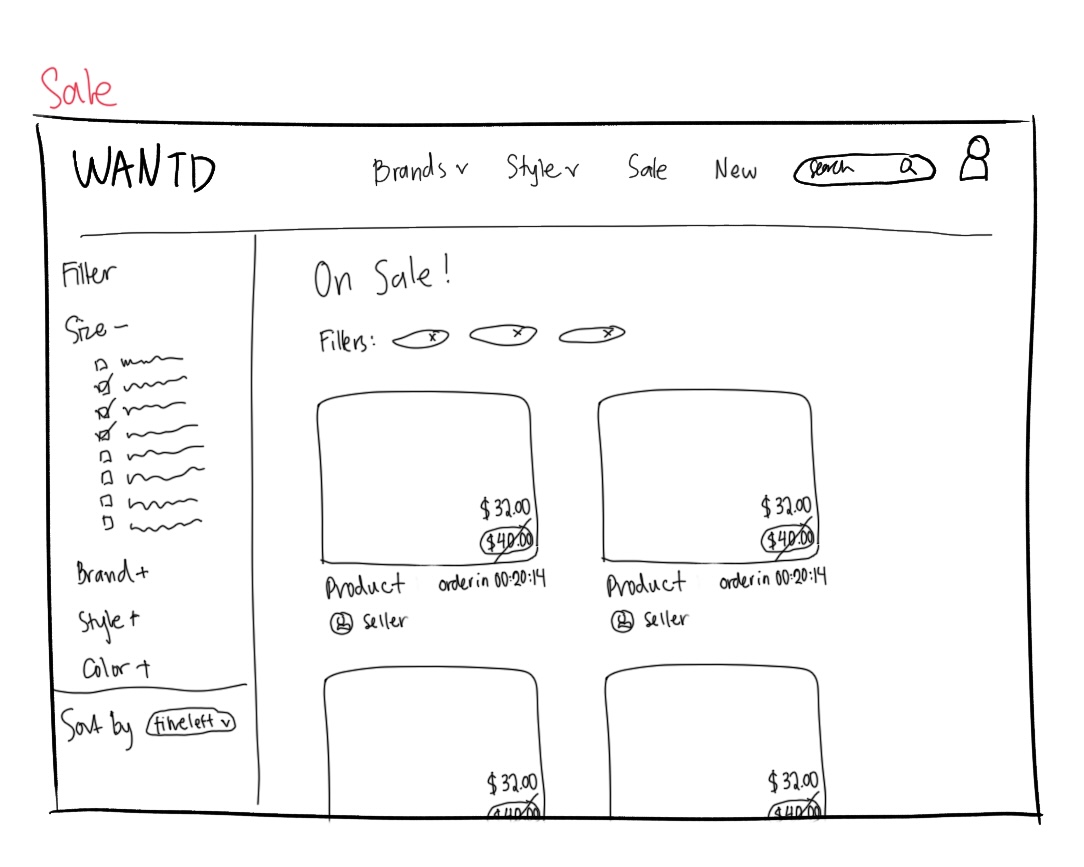 Sale
WANTD
Brands v Style v Sale New search
Filter
Size -
Brand +
Style +
Color +
Sort by time left v
On Sale!
Filters: x x x
$32.00
$40.00
Product order in 00:20:14
seller
$32.00
$40.00
Product order in 00:20:14
seller
$32.00
$40.00
$32.00
$40.00